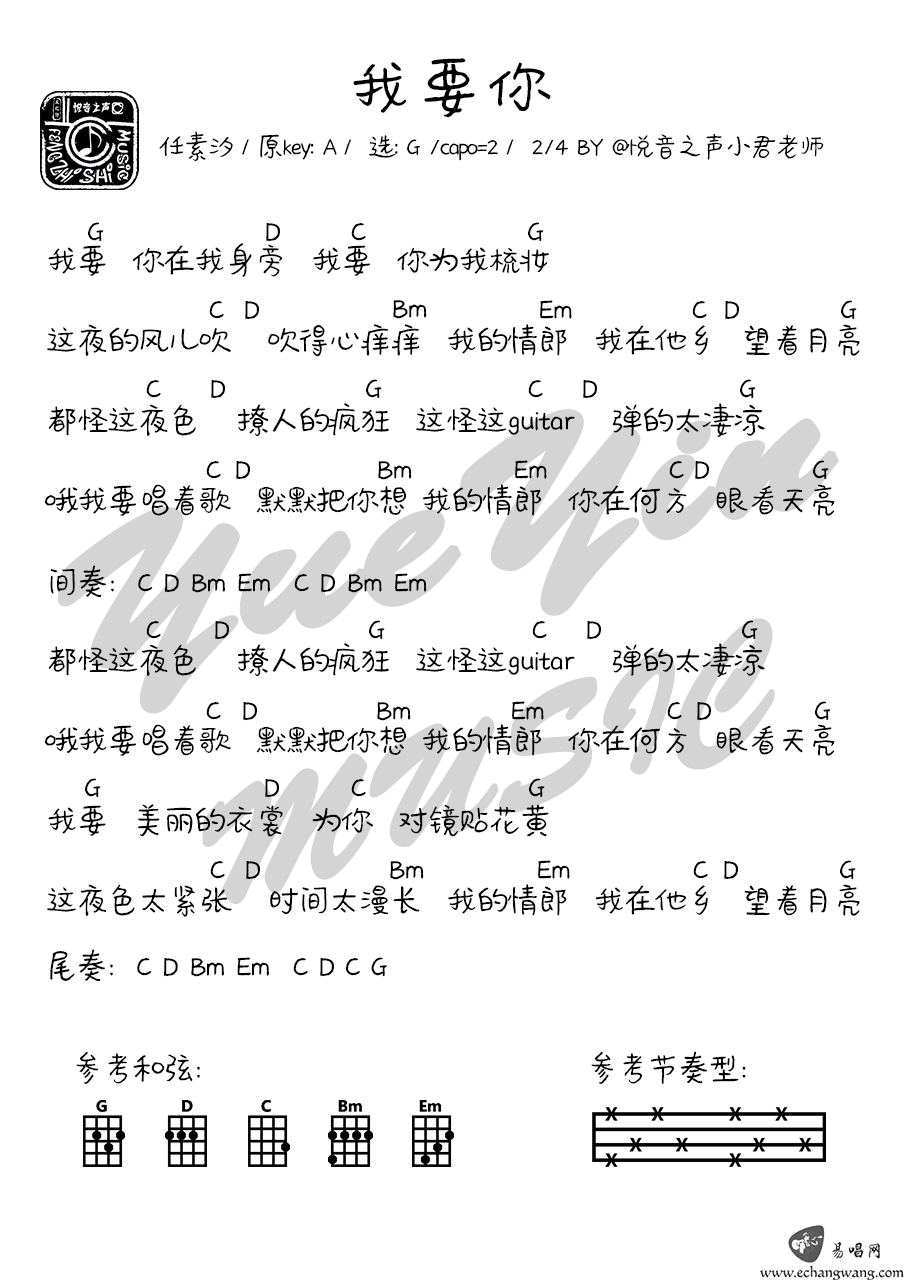 我要你
悦音之声
FENG ZHI SHI MUSIC
任素汐 / 原key: A / 选: G /capo=2 / 2/4 BY @悦音之声小君老师
G D C G
我要 你在我身旁 我要 你为我梳妆
C D Bm Em C D G
这夜的风儿吹 吹得心痒痒 我的情郎 我在他乡 望着月亮
C D G C D G
都怪这夜色 撩人的疯狂 这怪这guitar 弹的太凄凉
C D Bm Em C D G
哦我要唱着歌 默默把你想 我的情郎 你在何方 眼看天亮
间奏: C D Bm Em C D Bm Em
C D G C D G
都怪这夜色 撩人的疯狂 这怪这guitar 弹的太凄凉
C D Bm Em C D G
哦我要唱着歌 默默把你想 我的情郎 你在何方 眼看天亮
G D C G
我要 美丽的衣裳 为你 对镜贴花黄
C D Bm Em C D G
这夜色太紧张 时间太漫长 我的情郎 我在他乡 望着月亮
尾奏: C D Bm Em C D C G
Yue Yin
MUSIC
参考和弦: 参考节奏型:
G D C Bm Em
X X X X
X X X X
X X
易唱网
www.echangwang.com